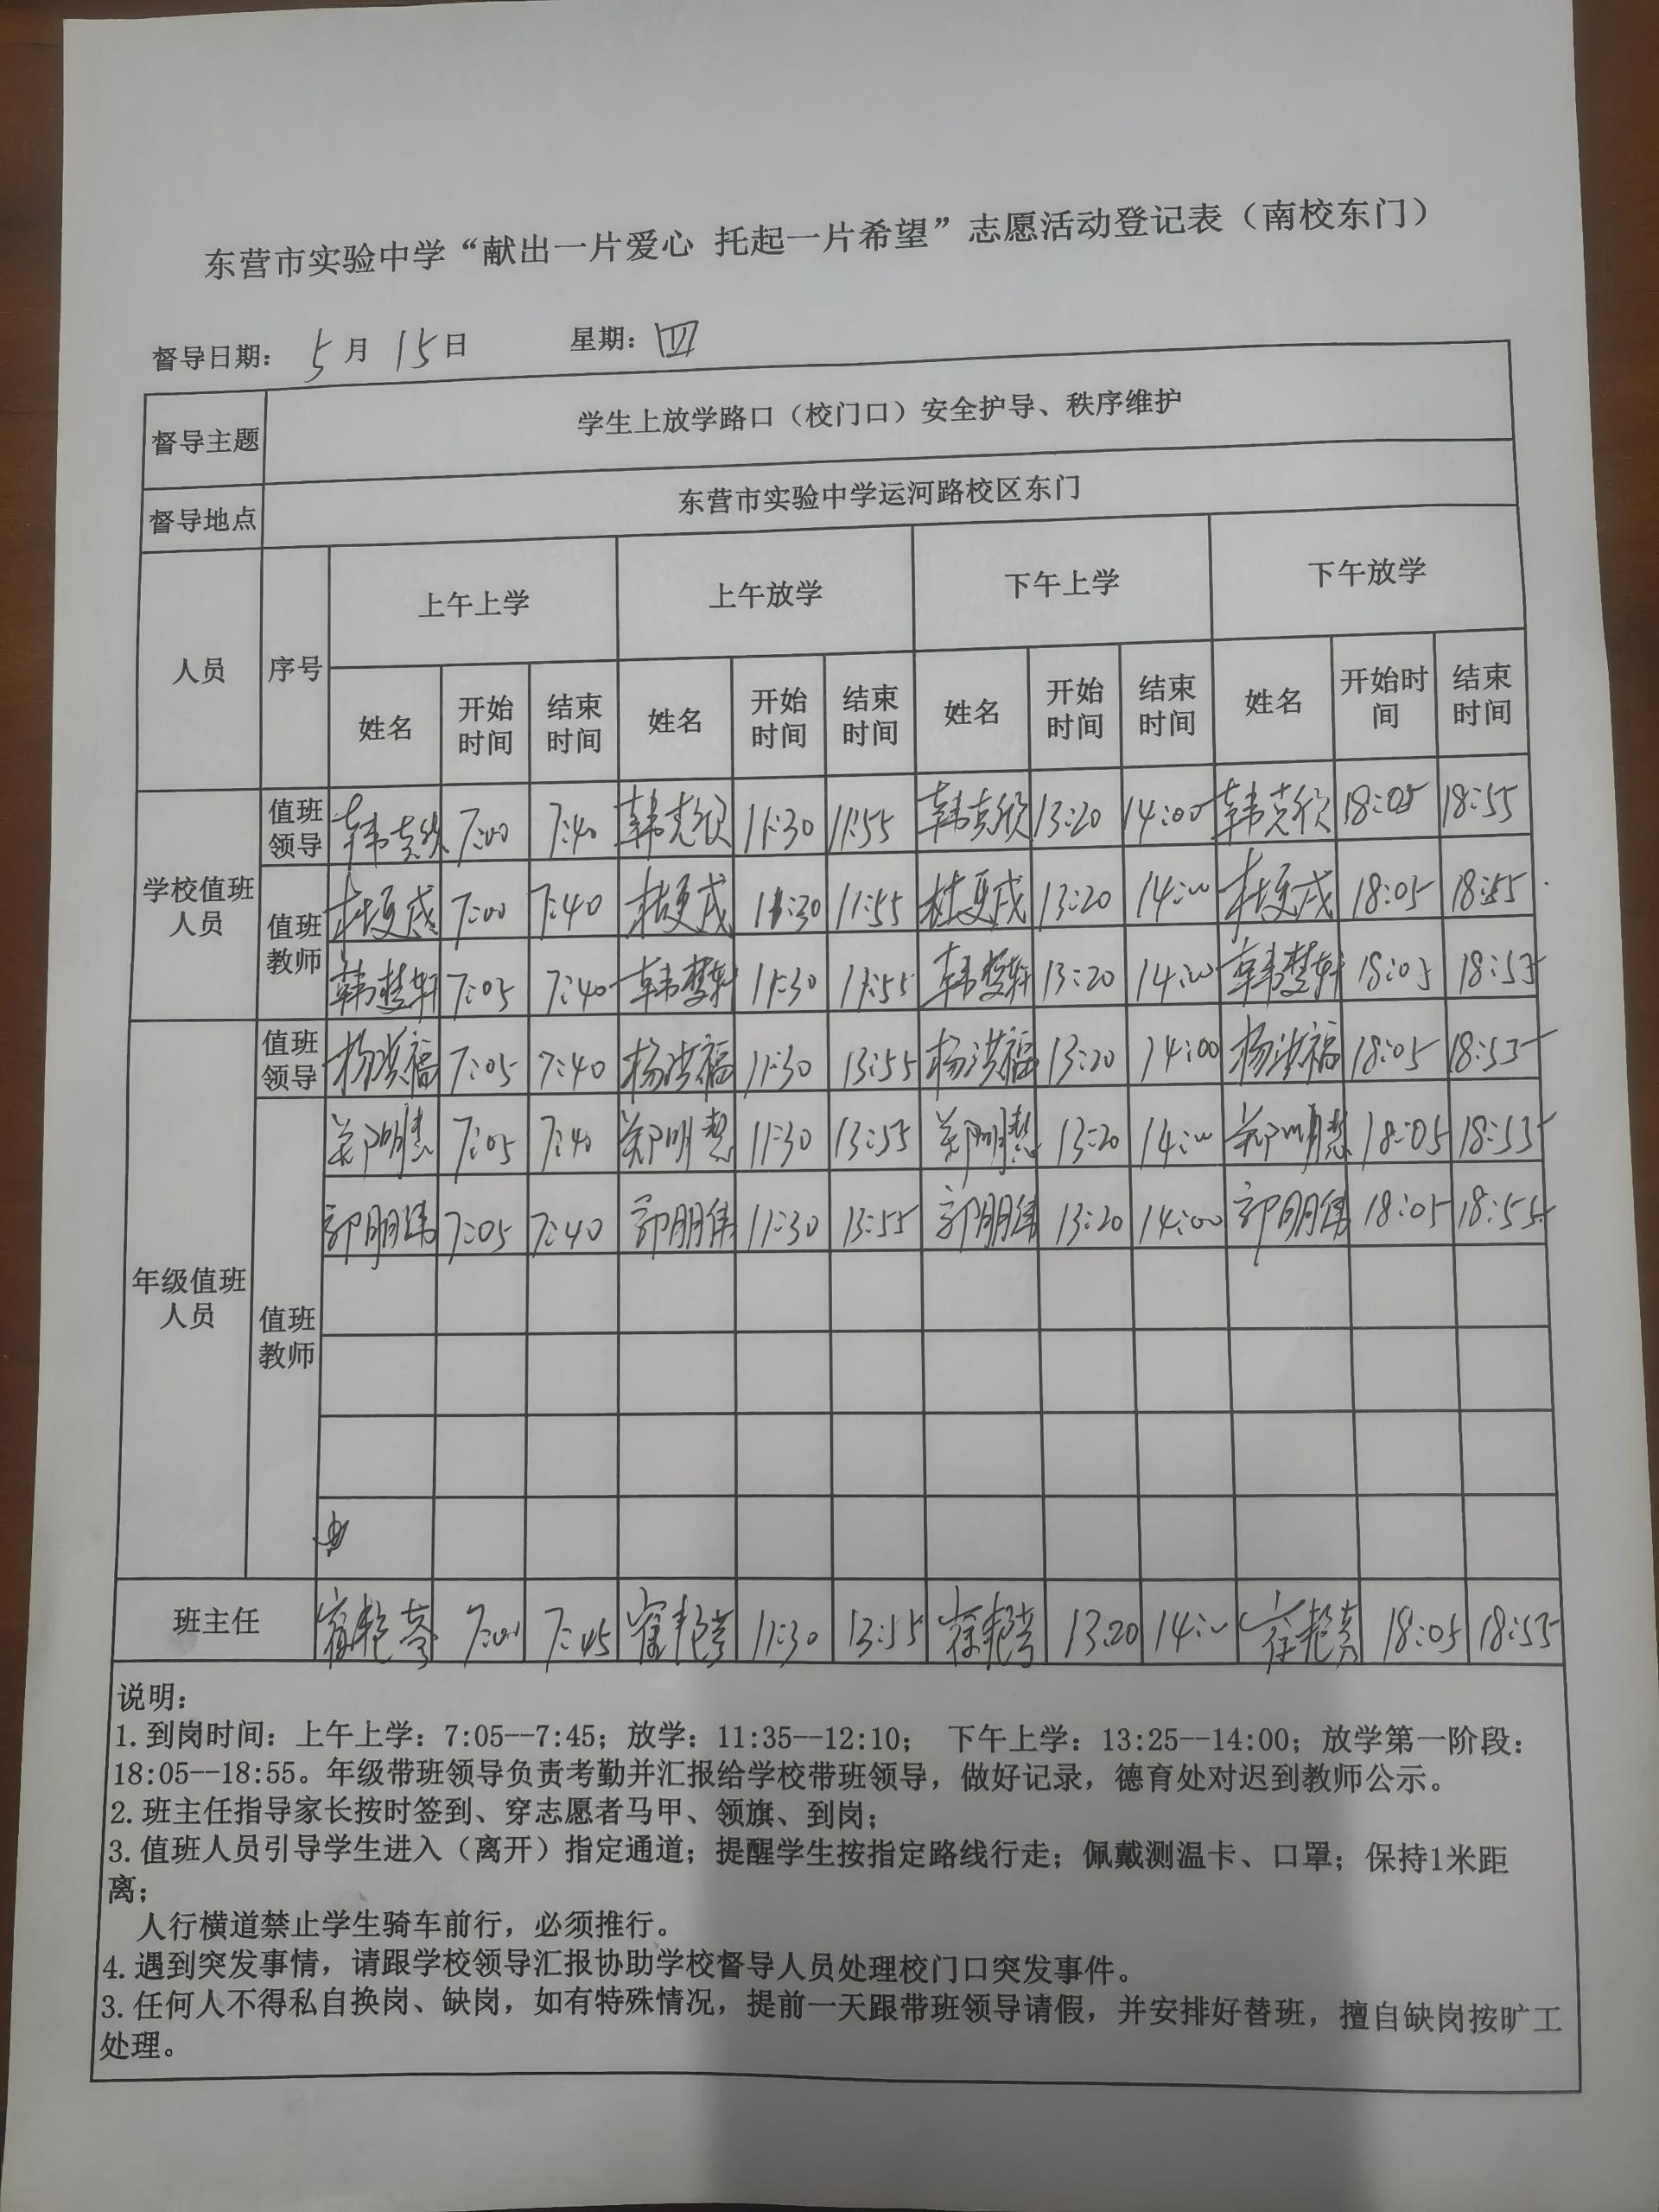 东营市实验中学“献出一片爱心 托起一片希望”志愿活动登记表（南校东门）
督导日期： 5月15日 星期：四
督导主题 学生上放学路口（校门口）安全护导、秩序维护
督导地点 东营市实验中学运河路校区东门
人员 序号 上午上学 上午放学 下午上学 下午放学
姓名 开始时间 结束时间 姓名 开始时间 结束时间 姓名 开始时间 结束时间 姓名 开始时间 结束时间
学校值班人员 值班领导 韩克欣 7:00 7:40 韩克欣 11:30 11:55 韩克欣 13:20 14:00 韩克欣 18:05 18:55
值班教师 杜夏戌 7:00 7:40 杜夏戌 11:30 11:55 杜夏戌 13:20 14:00 杜夏戌 18:05 18:55
韩楚轩 7:05 7:40 韩楚轩 11:30 11:55 韩楚轩 13:20 14:00 韩楚轩 18:05 18:55
年级值班人员 值班领导 杨洪福 7:05 7:40 杨洪福 11:30 13:55 杨洪福 13:20 14:00 杨洪福 18:05 18:55
值班教师 郑明慧 7:05 7:40 郑明慧 11:30 13:55 郑明慧 13:20 14:00 郑明慧 18:05 18:55
郭朋伟 7:05 7:40 郭朋伟 11:30 13:55 郭朋伟 13:20 14:00 郭朋伟 18:05 18:55
班主任 7:00 7:45 11:30 13:55 13:20 14:00 18:05 18:55
说明：
1.到岗时间：上午上学：7:05--7:45；放学：11:35--12:10； 下午上学：13:25--14:00；放学第一阶段：
18:05--18:55。年级带班领导负责考勤并汇报给学校带班领导，做好记录，德育处对迟到教师公示。
2.班主任指导家长按时签到、穿志愿者马甲、领旗、到岗；
3.值班人员引导学生进入（离开）指定通道；提醒学生按指定路线行走；佩戴测温卡、口罩；保持1米距
离；
人行横道禁止学生骑车前行，必须推行。
4.遇到突发事情，请跟学校领导汇报协助学校督导人员处理校门口突发事件。
3.任何人不得私自换岗、缺岗，如有特殊情况，提前一天跟带班领导请假，并安排好替班，擅自缺岗按旷工
处理。